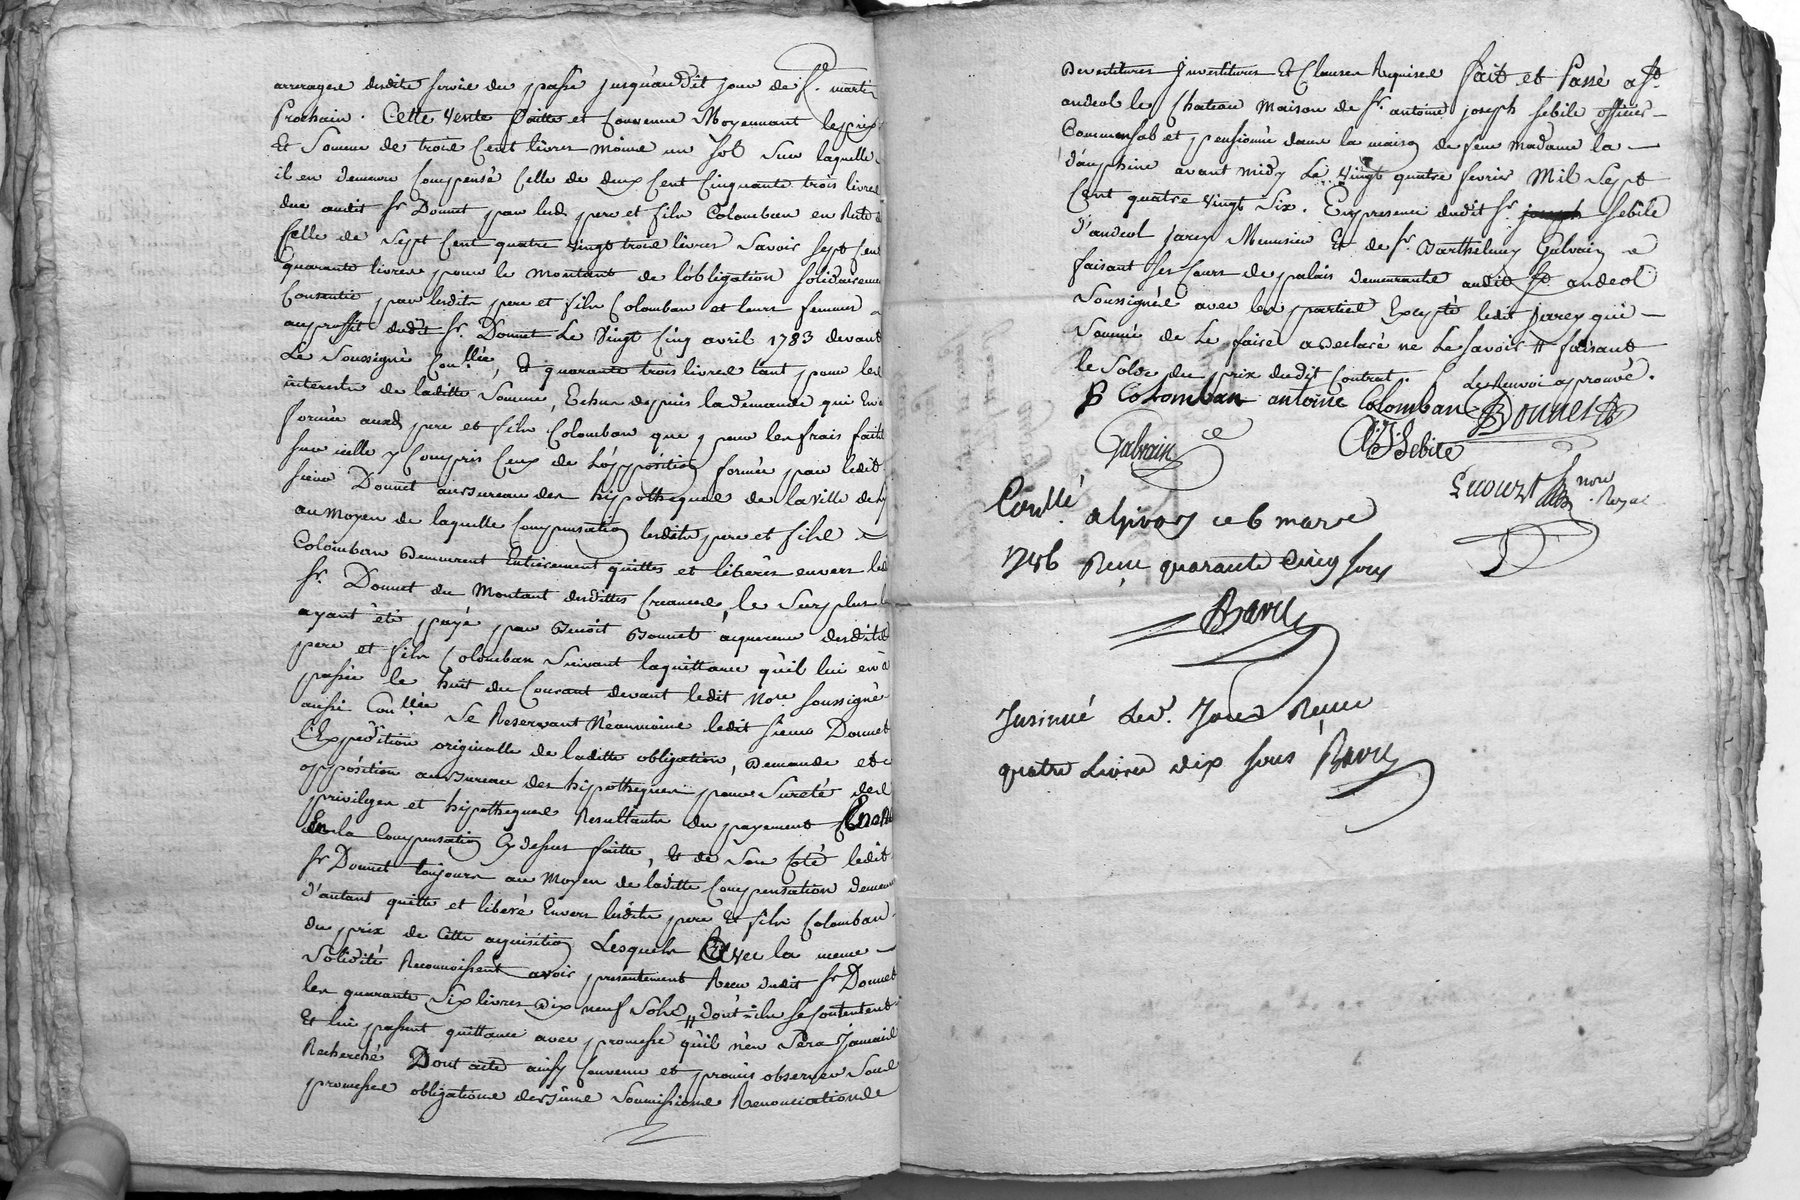 arrerages desdits servis du passé jusqu'audit jour de St. martin
Prochain. Cette Vente faitte et Convenue Moyennant le prix
Et Somme de trois Cent livres moins un sol Sur laquelle
il en demeure Compensé Celle de deux Cent Cinquante trois livres
due audit Sr Donnet par lesd. pere et fils Colomban en Reste de
Celle de Sept Cent quatre vingt trois livres Savoir Sept Cent
quarante livres pour le montant de l'obligation solidairement
Consentie par lesdits pere et fils Colomban et leurs femmes
au proffit dudit Sr. Donnet Le Vingt Cinq avril 1783 devant
Le Soussigné Con.llée, Et quarante trois livres tant pour les
interests de laditte Somme, Echus depuis la demande qui En a
formée auxd. pere et fils Colomban que pour les frais faits
sur icelle y Compris Ceux de L'opposition formée par ledit
sieur Donnet au bureau des hipotheques de la Ville de
au moyen de laquelle Compensation lesdits pere et fils
Colomban Demeurent Entierement quittes et liberés envers led.
Sr. Donnet du Montant desdittes Creances, le Surplus
ayant êté payé par Benoit Bonnet acquereur desdits
pere et fils Colomban Suivant la quittance qu'il lui en a
passée le huit du Courant devant ledit No.re soussigné
aussi Con.llée Se Reservant Neanmoins ledit sieur Donnet
l'Expedition originalle de laditte obligation, Demande et
opposition au bureau des hipotheques pour Sureté des
privileges et hipotheques Resultants du payement
En la Compensation Cy dessus faitte, Et de Son Coté ledit
Sr Donnet toujours au Moyen de laditte Compensation demeure
d'autant quitte et liberé Envers lesdits pere Et fils Colomban
du prix de Cette acquisition Lesquels Avec la meme
Solidité Reconnoissent avoir presentement Recu dudit Sr Donnet
les quarante Six livres Dix neuf Sols, // dont ils se Contentent
Et lui passent quittance avec promesse qu'il n'en Sera Jamais
Recherché Dont acte ainsy Convenu et promis observer Sous
promesses obligations Soumissions Renonciations de
Devestitures Investitures Et Clauses Requises fait et Passé a St.
andeol le Chateau Maison de Sr. antoine joseph Sebile officier
Commensal et pensionné dans la maison de feue Madame la
d'auphine avant midy Le Vingt quatre fevrier Mil Sept
Cent quatre Vingt Six. En presence dudit Sr. joseph Sebile
d'andeol Jarey Menusier Et de Sr. Barthelemy Galvain
faisant ses Cours de palais demeurants audit St. andeol
Soussignés avec les parties Excepté ledit Jarey qui
Sommé de Le faire a Declaré ne Le Savoir // faisant
le Solde du prix dudit Contrat. Le Renvoi approuvé.
B Colomban antoine Colomban Donnet
Galvain AJ Sebile
no.re Royal
Con.llé a Givors ce 6 mars
1786 Recu quarante Cinq Sous
Bavu
Insinué led. Jour Recu
quatre Livres dix sous Bavu